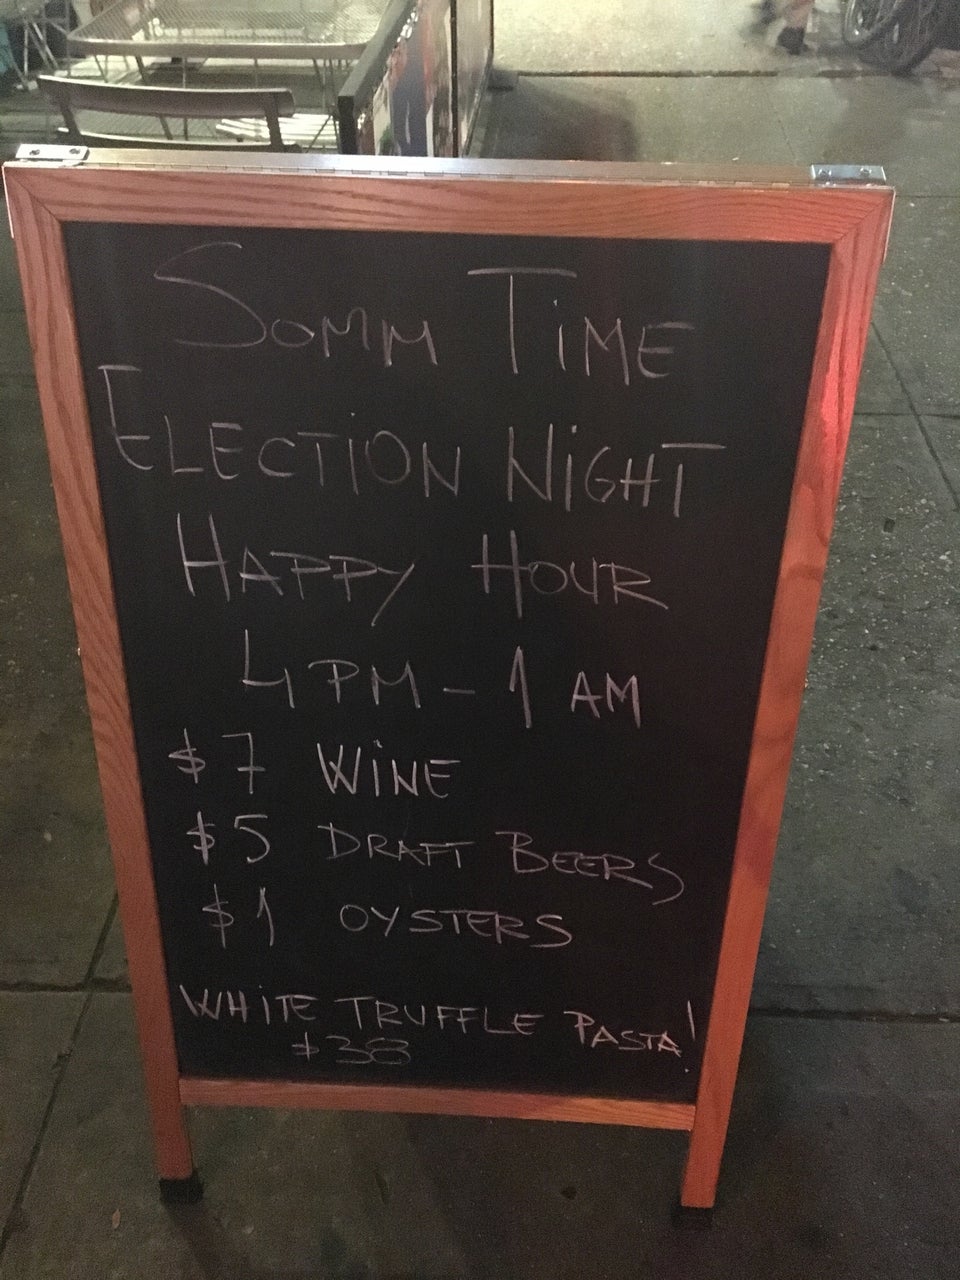 SOMM TiME
ELECTiON NiGHT
HAPPY HOUR
4 PM - 1 AM
$7 WiNE
$5 DRAFT BEERS
$1 OYSTERS
WHiTE TRUFFLE PASTA!
$38